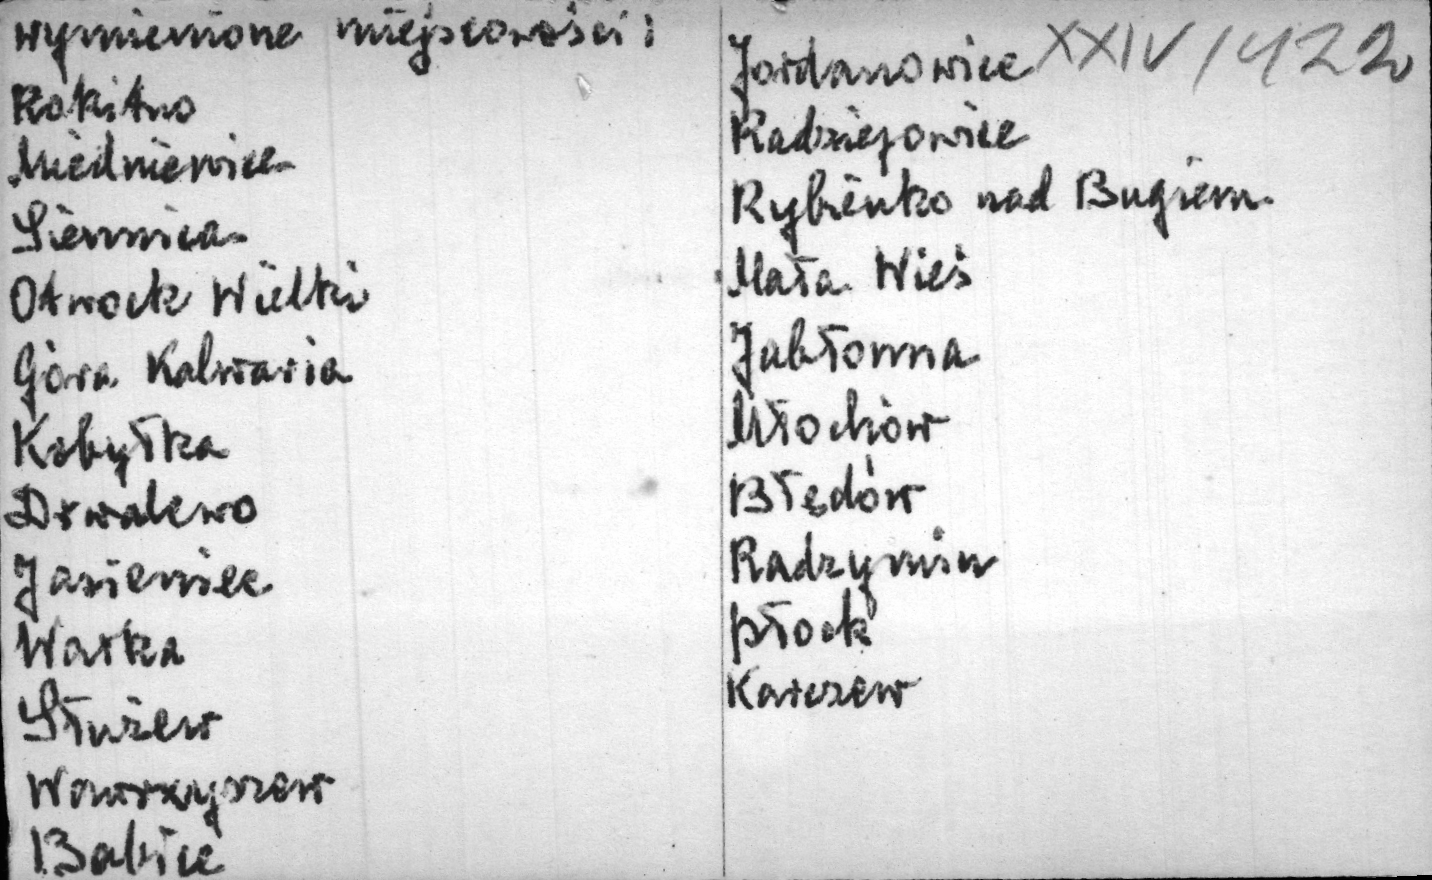 wymienione miejscowości:
Rokitno
Miedniewice
Siennica
Otwock Wielki
Góra Kalwaria
Kobyłka
Drwalewo
Jasieniec
Warka
Służew
Wawrzyszew
Babice
XXIV/422
Jordanowice
Radziejowice
Rybienko nad Bugiem
Mała Wieś
Jabłonna
Młochów
Błędów
Radzymin
Płock
Karczew